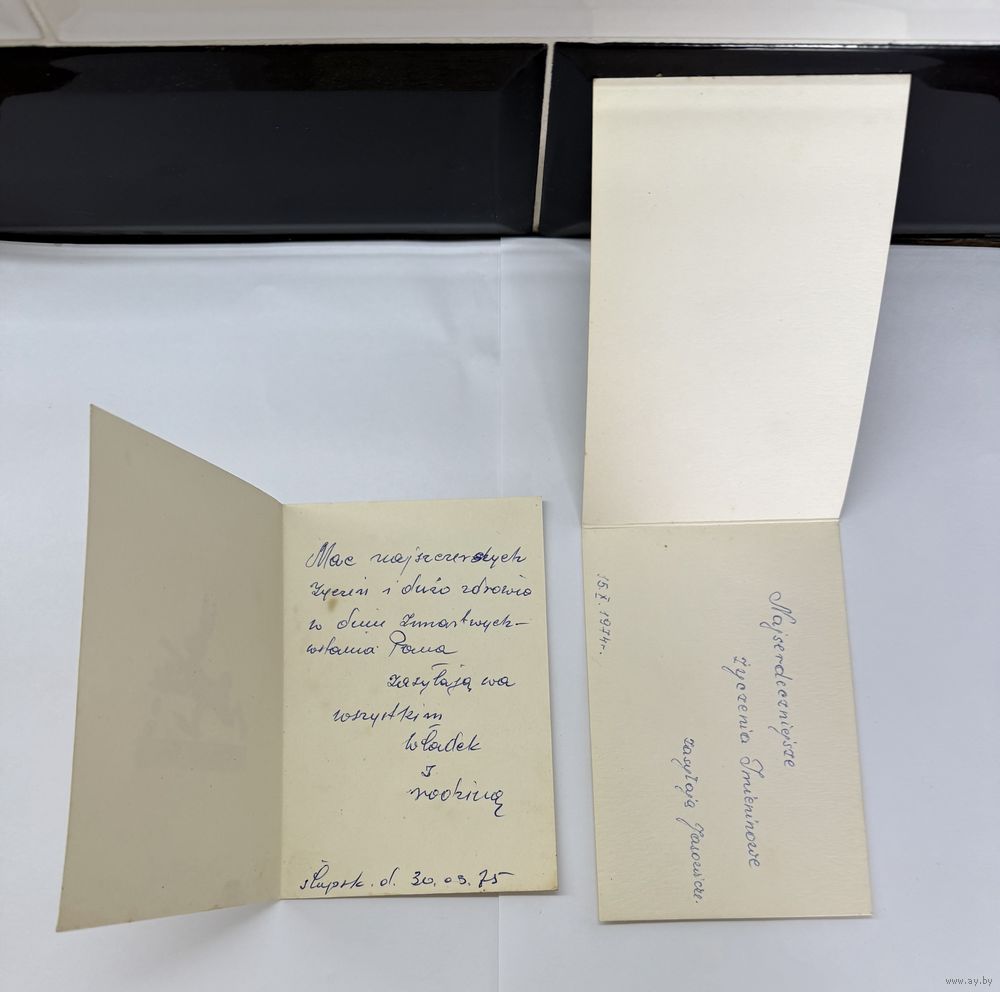 Mac najszczerszych
życzeń i dużo zdrowia
w dniu Zmartwych-
wstania Pana
zasyłają wa
wszystkim
Władek
z
rodziną
Słupsk. d. 30.03.75
15.X.1974r.
Najserdeczniejsze
życzenia Imieninowe
zasyłają
www.ay.by